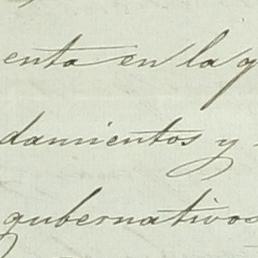 enta en la q
damientos y
gubernativos